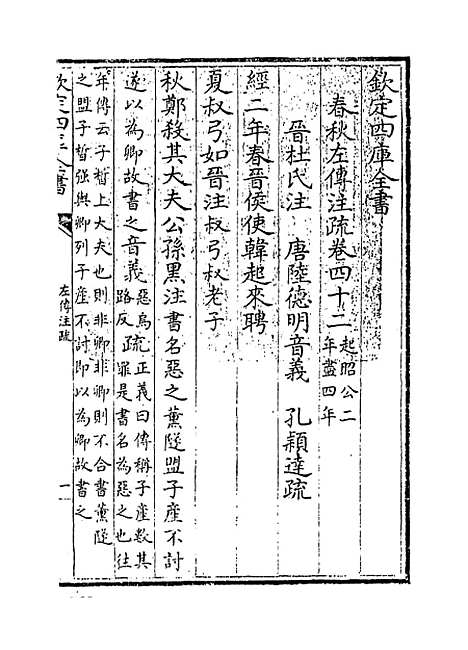 欽定四庫全書
春秋左傳注疏卷四十二
起昭公二
年盡四年
晉杜氏注　唐陸德明音義　孔穎達疏
經二年春晉侯使韓起來聘
夏叔弓如晉注叔弓叔老子
秋鄭殺其大夫公孫黑注書名惡之薰隧盟子產不討
遂以為卿故書之音義惡烏路反疏正義曰傳稱子產數其罪是書名為惡之也往
年傳云子晳上大夫也則非卿非卿則不合書薰隧
之盟子晳強與卿列子產不討即以為卿故書之
欽定四庫全書
左傳注疏
一